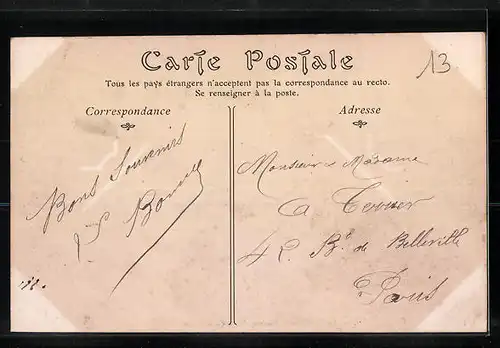 Carte Postale
13
Tous les pays étrangers n'acceptent pas la correspondance au recto.
Se renseigner à la poste.
Correspondance
Adresse
Bons Souvenirs
Monsieur & Madame
A
4 Bd de Belleville
Paris